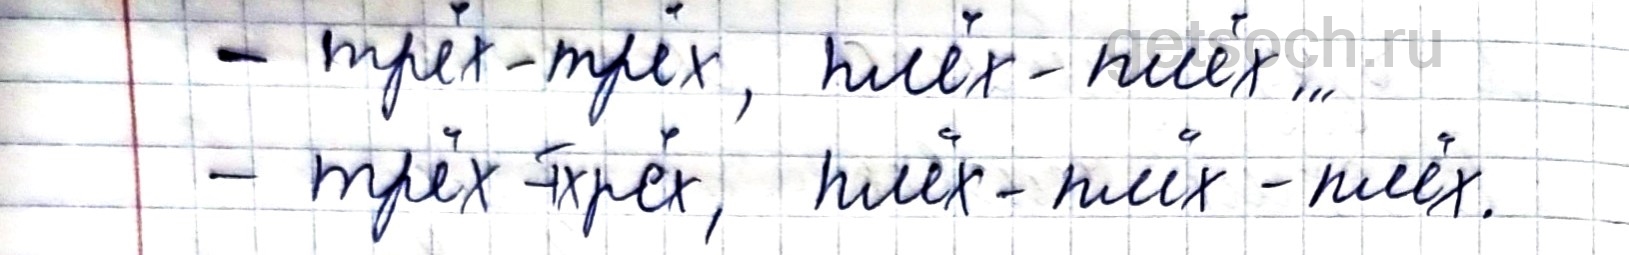 - трёх-трёх, плёх - плёх...
- трёх -тхрёх, плёх - плёх - плёх.
getsoch.ru